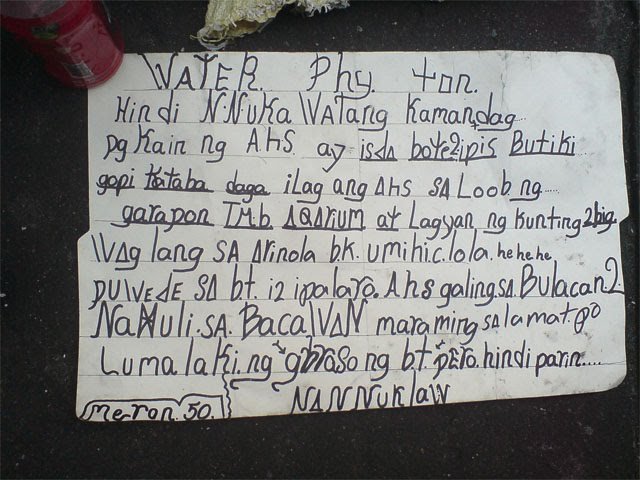 WATER. Phy. ton.
Hindi NNUKA WATang kamandag..
pg kain ng Ahs. ay isda bote2ipis Butiki
gopi kataba daga ilag ang Ahs SA Loob ng.....
garapon T.M.b AQArium at Lagyan ng kunting 2big.
WAg lang SA Arinola b.k. umihi c. lola. he he he.
PUWEdE SA bt. i2 ipalaro. Ahs galing sA. Bulacan2.
NaHuli. SA. BacaWAN maraming salamat. po
Lumalaki. ng gbraso ng b.t. pero. hindi parin....
NANNuklaw
Meron. 50.